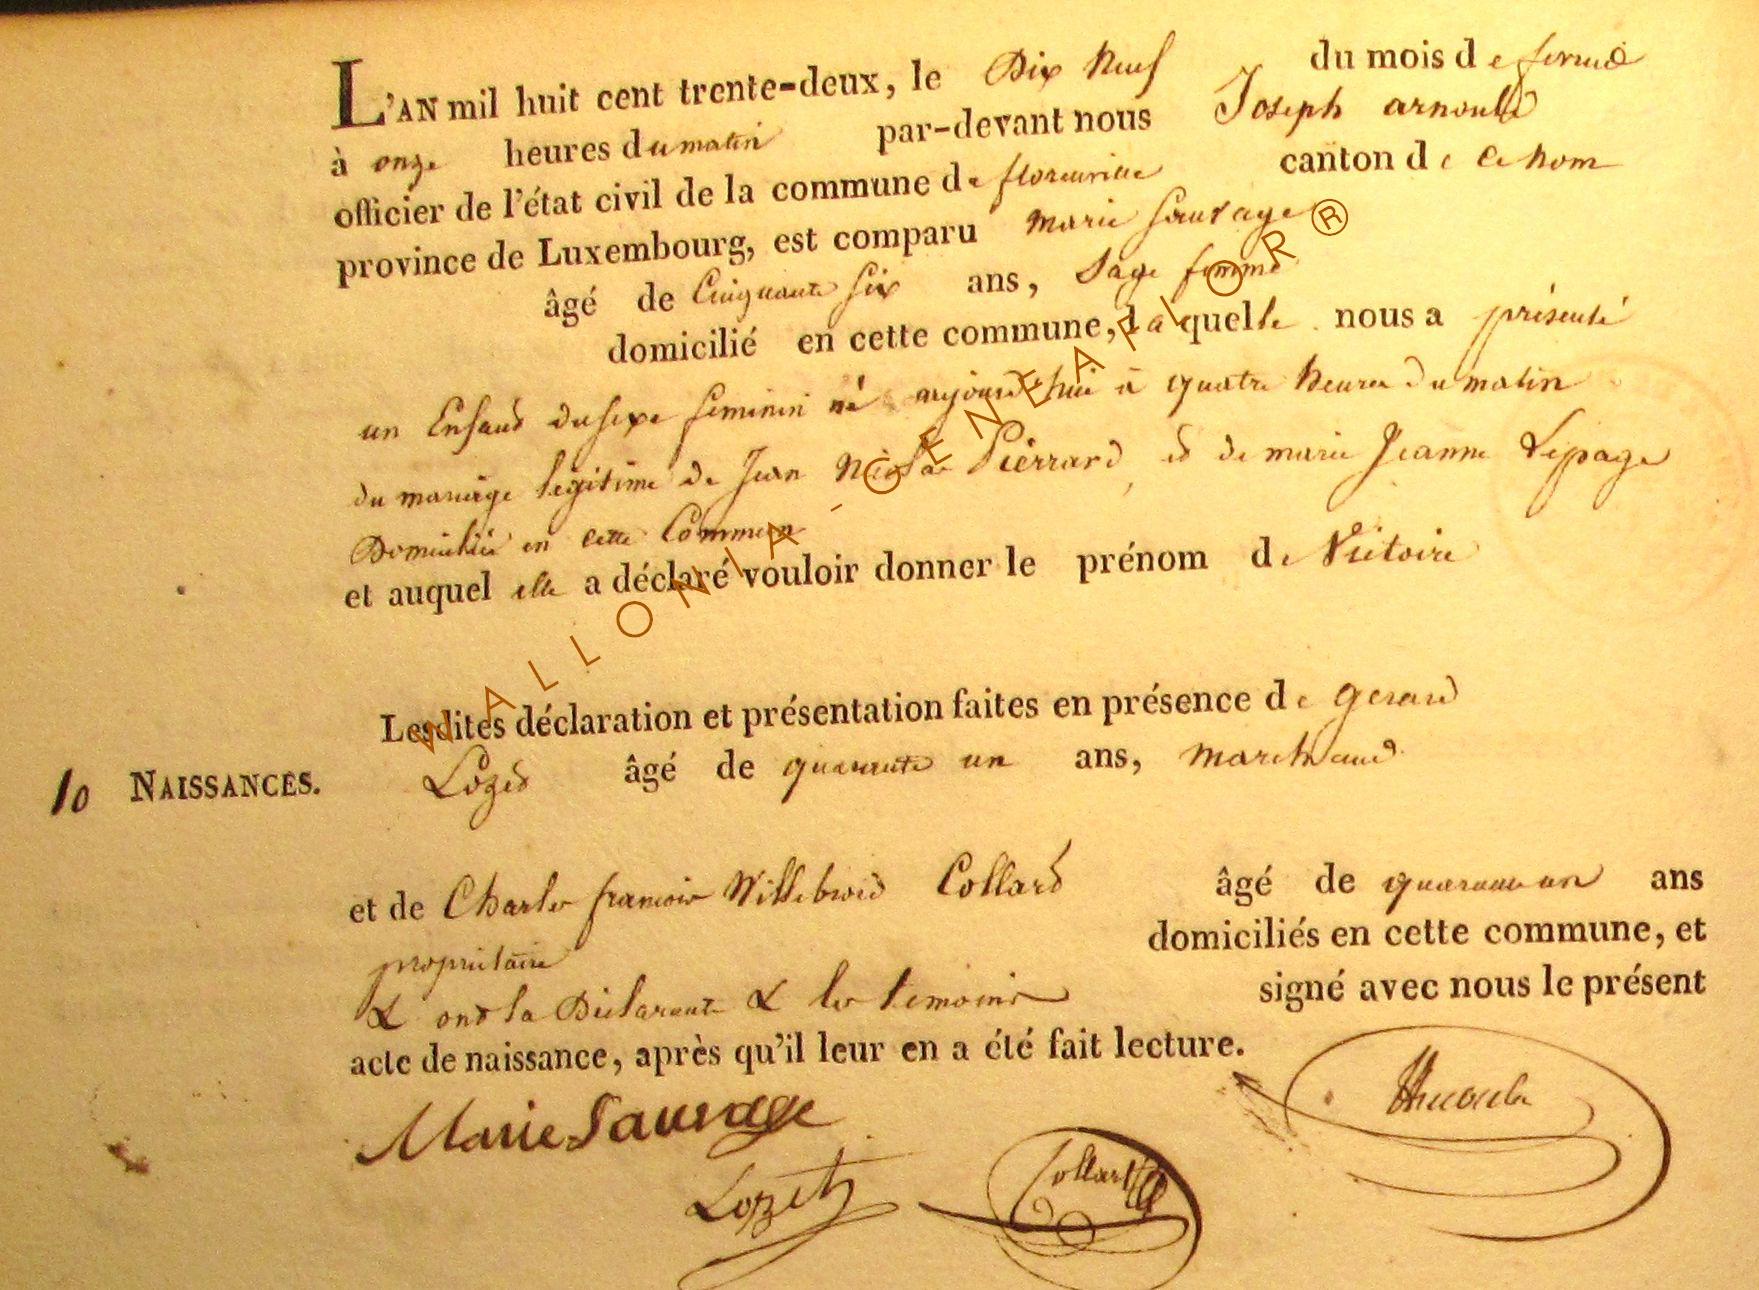 L'AN mil huit cent trente-deux, le Dix Neuf du mois de
à onze heures du matin par-devant nous Joseph arnould
officier de l'état civil de la commune de florenville canton de ce nom
province de Luxembourg, est comparu Marie Sauvage
âgé de Cinquante six ans, Sage femme
domicilié en cette commune, laquelle nous a présenté
un Enfand du sexe feminin né aujourd'hui à quatre heures du matin
du mariage legitime de Jean Nicolas Pierrard ed de marie Jeanne Lepage
Domiciliés en cette Commune
et auquel elle a déclaré vouloir donner le prénom de Victoire
Lesdites déclaration et présentation faites en présence de Gerard
10 NAISSANCES.
Lozed âgé de quarante un ans, Marchand
et de Charles francois Willebrord Collard âgé de quarante un ans
propriétaire domiciliés en cette commune, et
& ond la Déclarante & les temoins signé avec nous le présent
acte de naissance, après qu'il leur en a été fait lecture.
Marie Sauvage
Lozet
Collard
WALLONIA - GENEAFLOR®